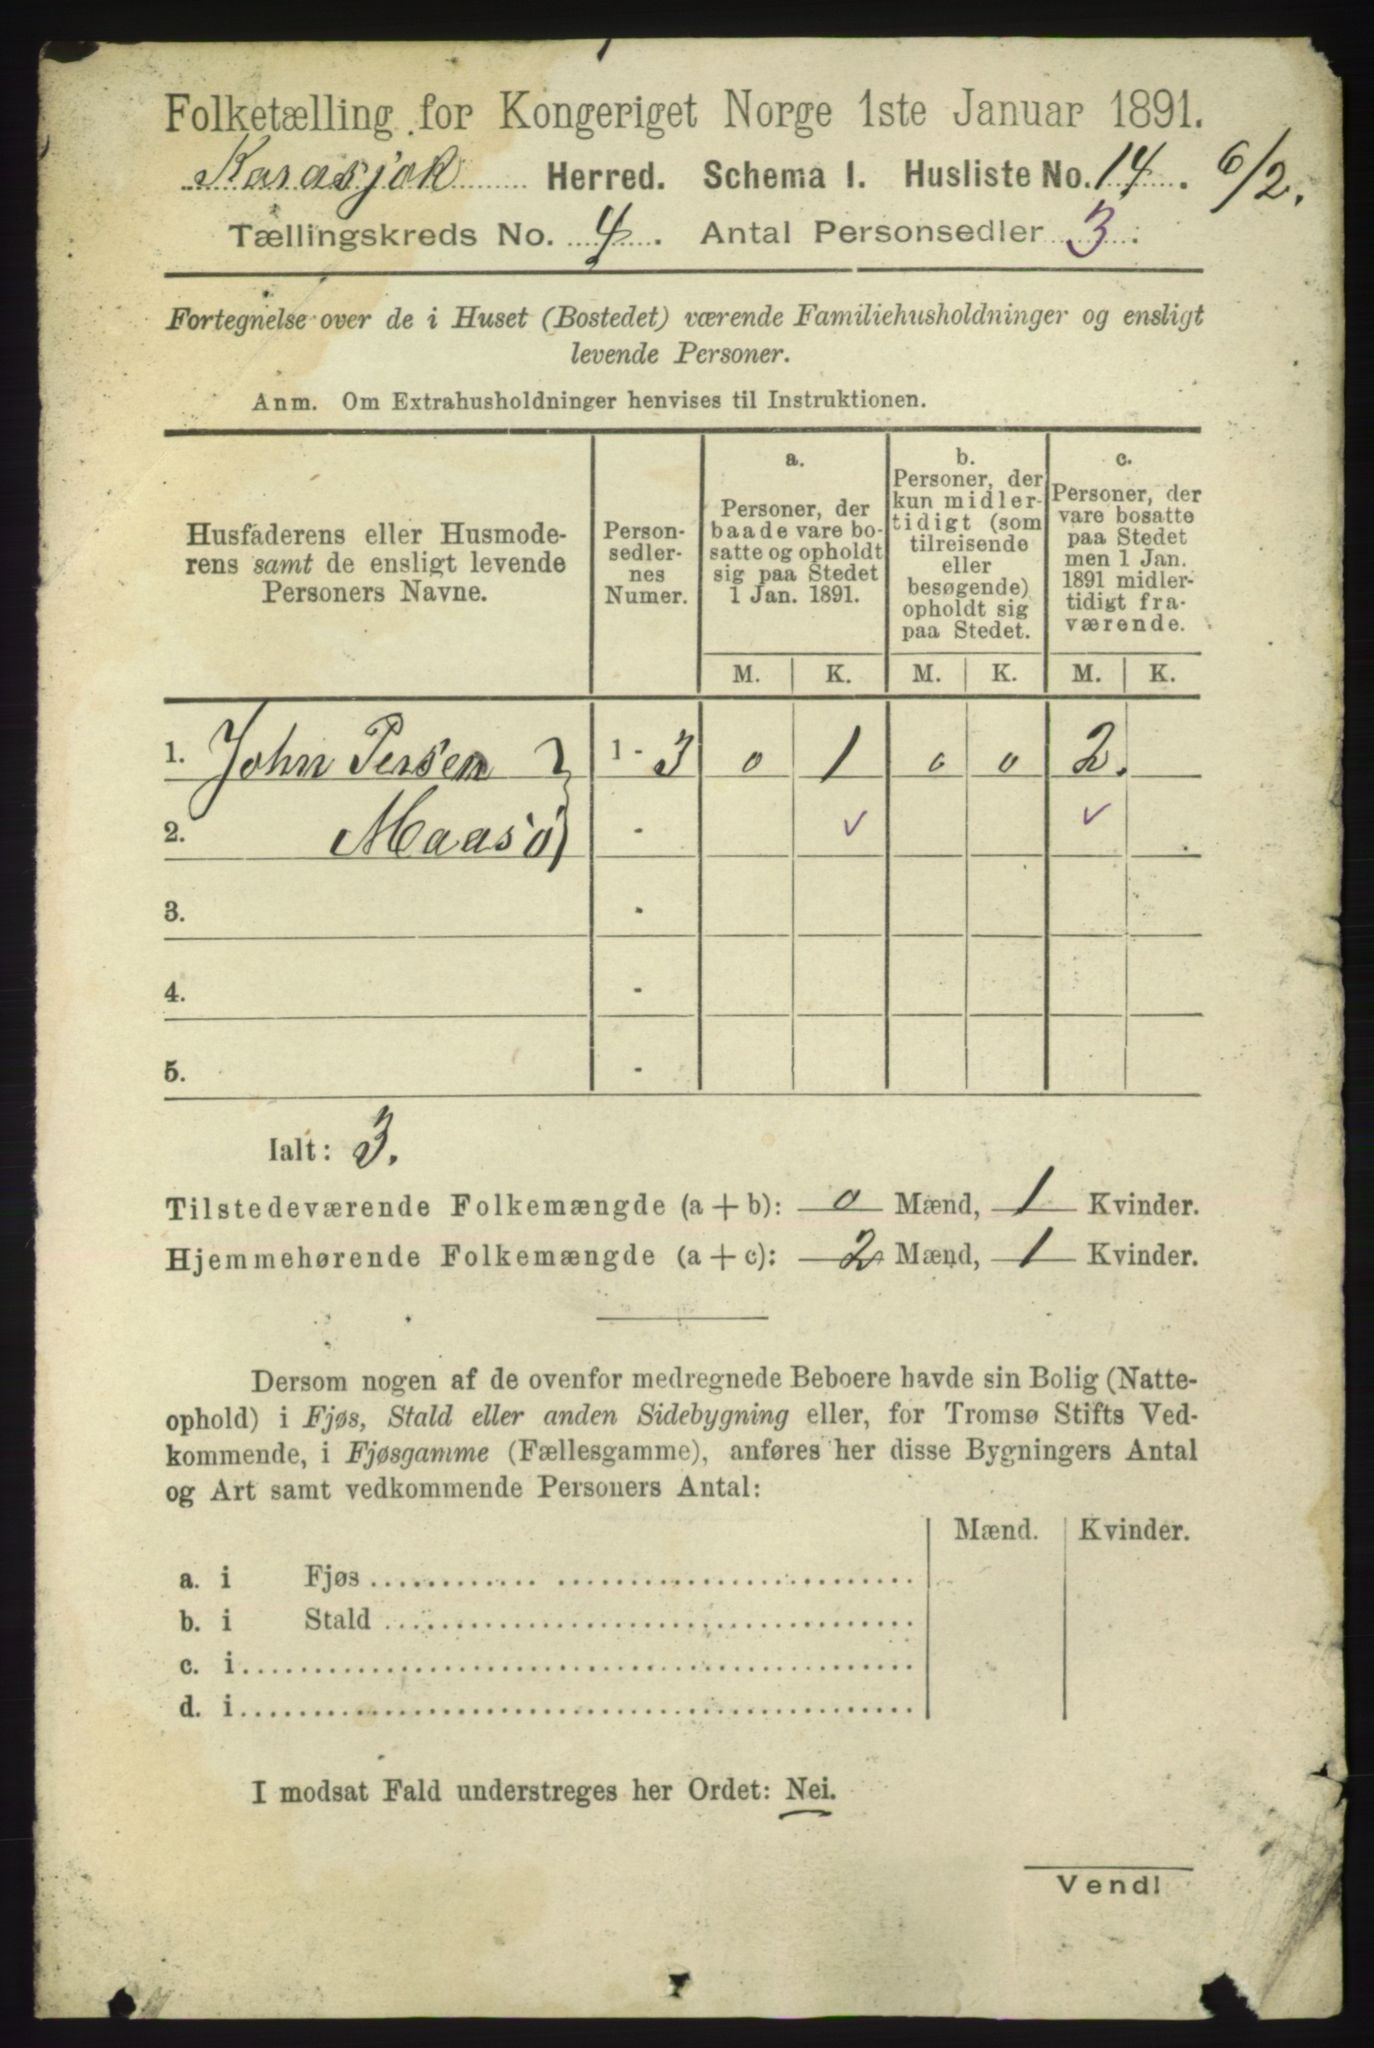 Folketælling for Kongeriget Norge 1ste Januar 1891.
Karasjok Herred. Schema I. Husliste No. 14. 6/2.
Tællingskreds No. 4. Antal Personsedler 3.
Fortegnelse over de i Huset (Bostedet) værende Familiehusholdninger og ensligt
levende Personer.
Anm. Om Extrahusholdninger henvises til Instruktionen.
Husfaderens eller Husmode-
rens samt de ensligt levende
Personers Navne.
Person-
sedler-
nes
Numer.
a.
Personer, der
baade vare bo-
satte og opholdt
sig paa Stedet
1 Jan. 1891.
b.
Personer, der
kun midler-
tidigt (som
tilreisende
eller
besøgende)
opholdt sig
paa Stedet.
c.
Personer, der
vare bosatte
paa Stedet
men 1 Jan.
1891 midler-
tidigt fra-
værende.
M. K. M. K. M. K.
1. John Persen 1 - 3 0 1 0 0 2.
2. Maasø - ✓ ✓
3. -
4. -
5. -
Ialt: 3.
Tilstedeværende Folkemængde (a + b): 0 Mænd, 1 Kvinder.
Hjemmehørende Folkemængde (a + c): 2 Mænd, 1 Kvinder.
Dersom nogen af de ovenfor medregnede Beboere havde sin Bolig (Natte-
ophold) i Fjøs, Stald eller anden Sidebygning eller, for Tromsø Stifts Ved-
kommende, i Fjøsgamme (Fællesgamme), anføres her disse Bygningers Antal
og Art samt vedkommende Personers Antal:
Mænd. Kvinder.
a. i Fjøs
b. i Stald
c. i
d. i
I modsat Fald understreges her Ordet: Nei.
Vend!